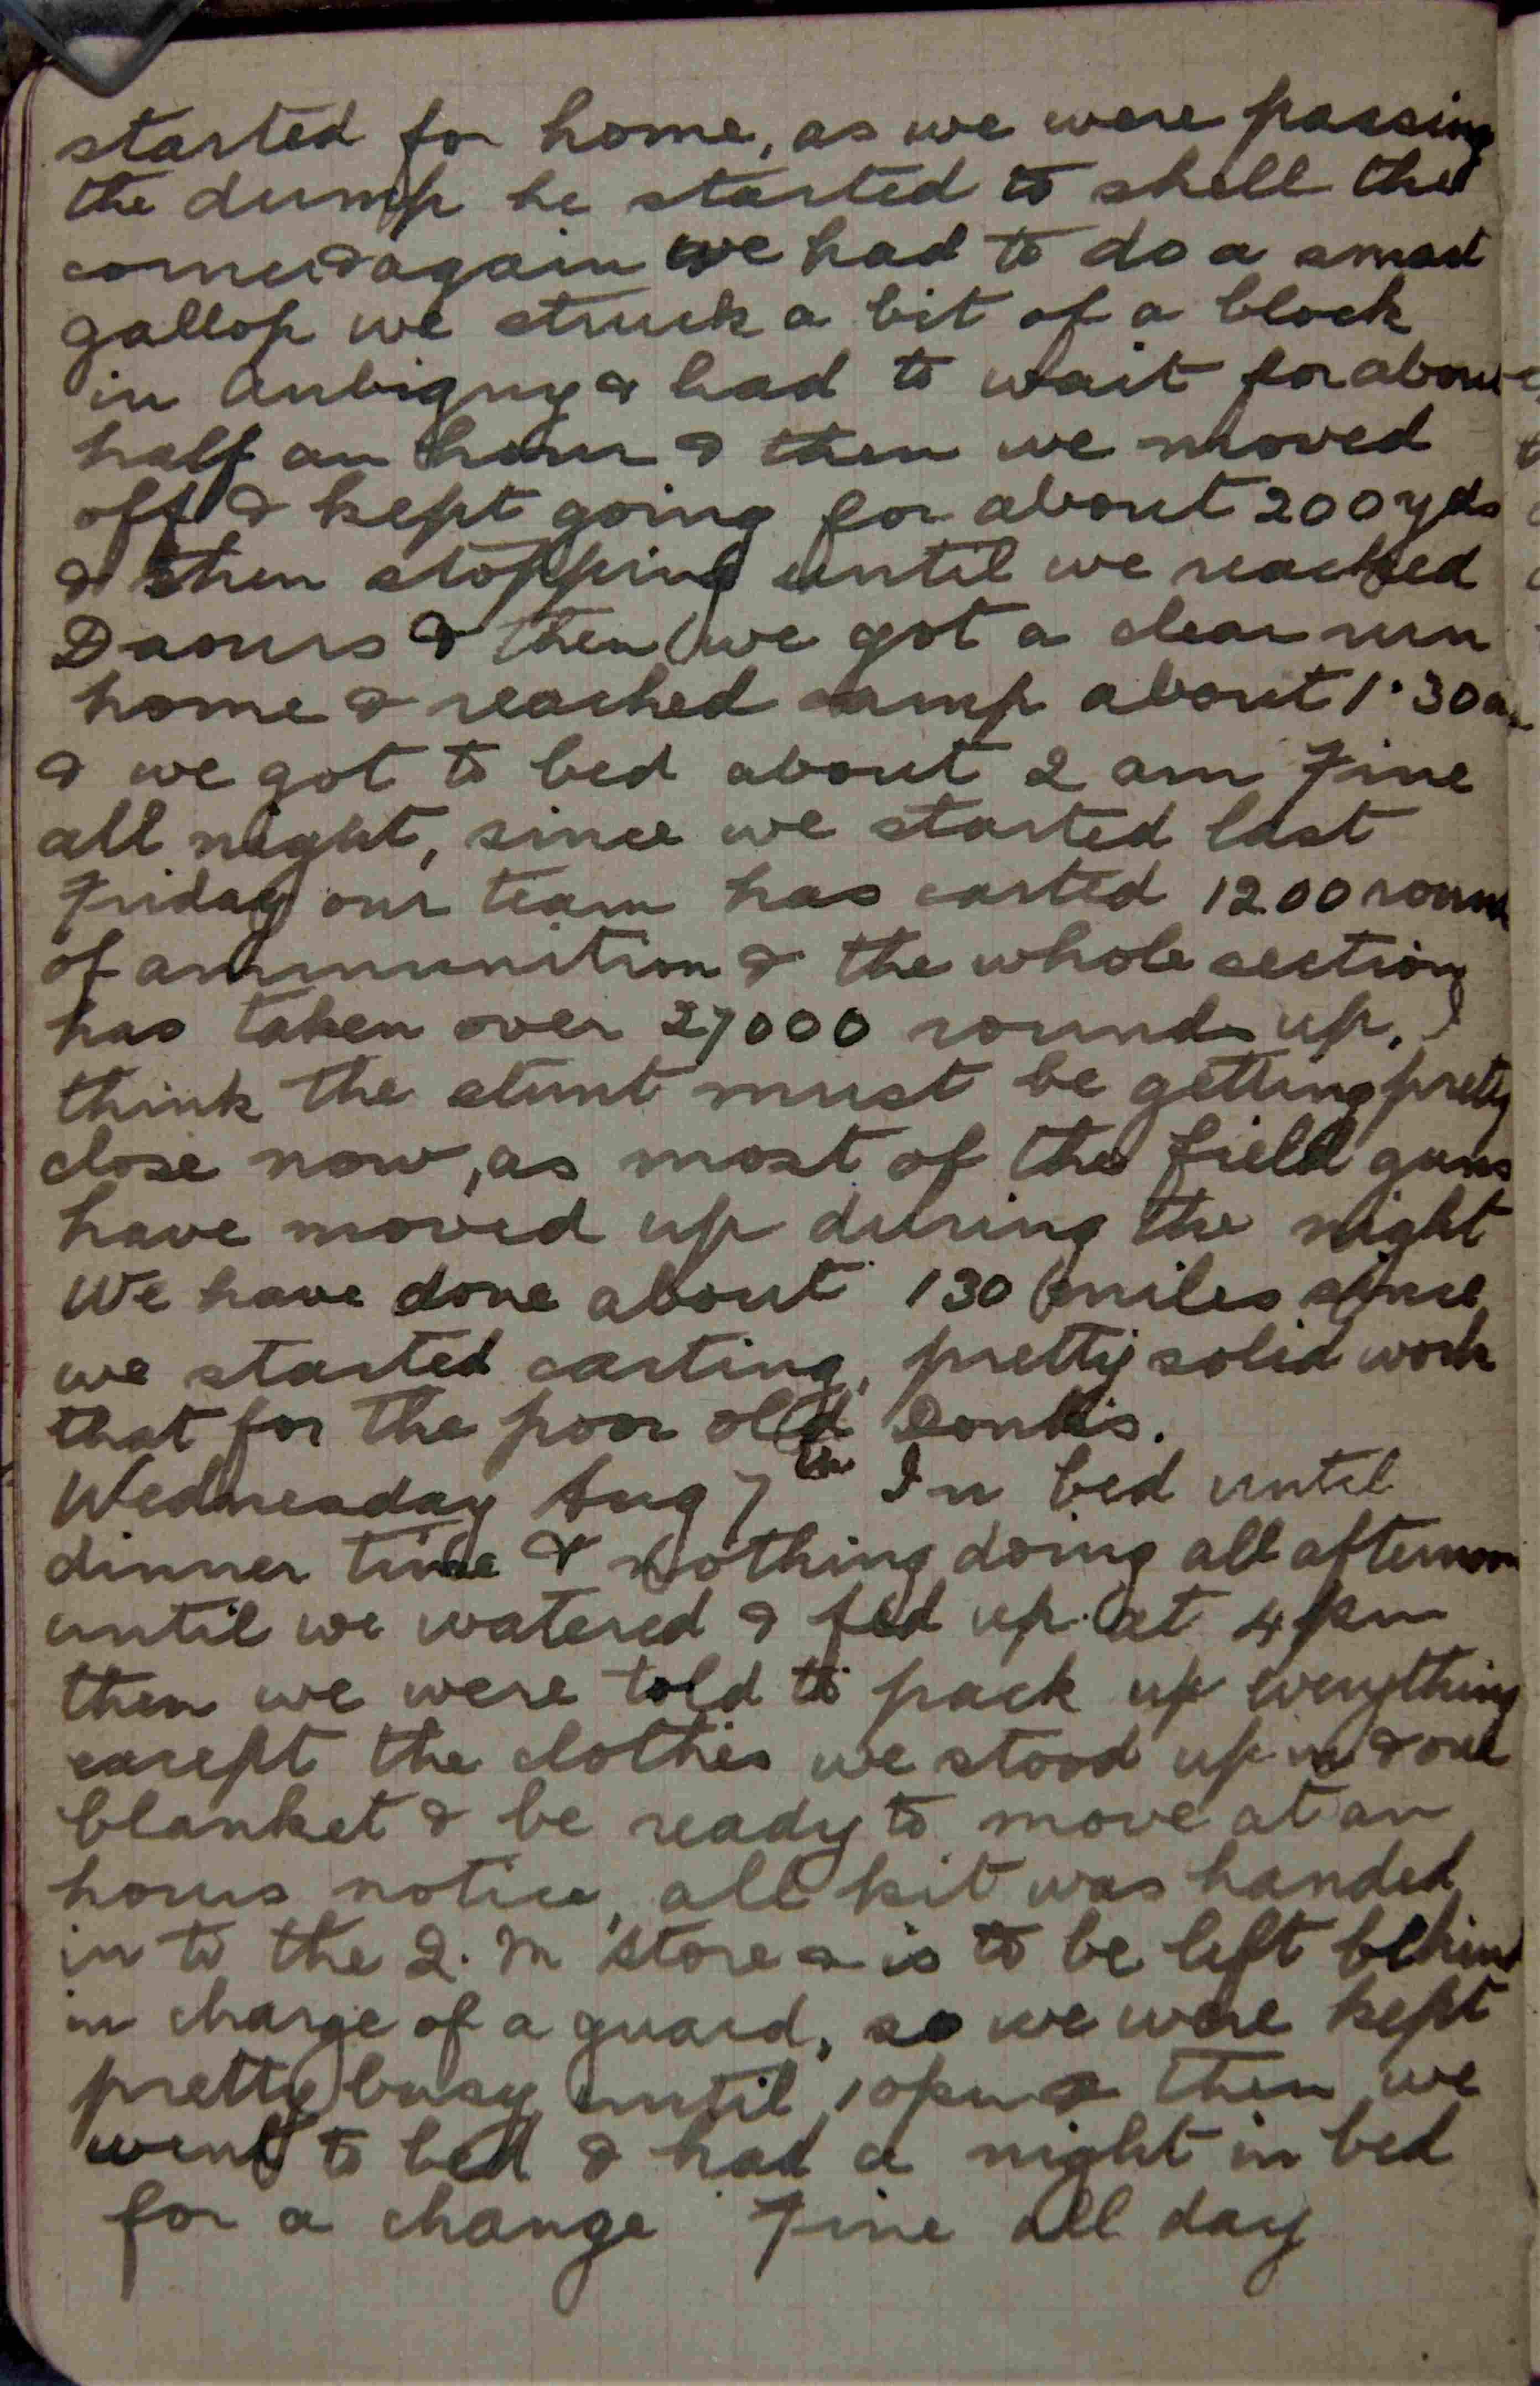 started for home, as we were passing
the dump he started to shell the
corner & again we had to do a smart
gallop we struck a bit of a block
in Aubigny & had to wait for about
half an hour & then we moved
off & kept going for about 200 yds
& then stopping until we reached
Daours & then we got a clear run
home & reached camp about 1.30 am
& we got to bed about 2 am Fine
all night, since we started last
Friday our team has carted 1200 round
of ammunition & the whole section
has taken over 27000 rounds up, I
think the stunt must be getting pretty
close now, as most of the field guns
have moved up during the night
We have done about 130 miles since
we started carting, pretty solid work
that for the poor old donks.
Wednesday Aug 7th In bed until
dinner time & nothing doing all afternoon
until we watered & fed up at 4 pm
then we were told to pack up everything
except the clothes we stood up in & one
blanket & be ready to move at an
hours notice, all kit was handed
in to the Q. M store & is to be left behind
in charge of a guard, so we were kept
pretty busy until 10pm & then we
went to bed & had a night in bed
for a change Fine all day